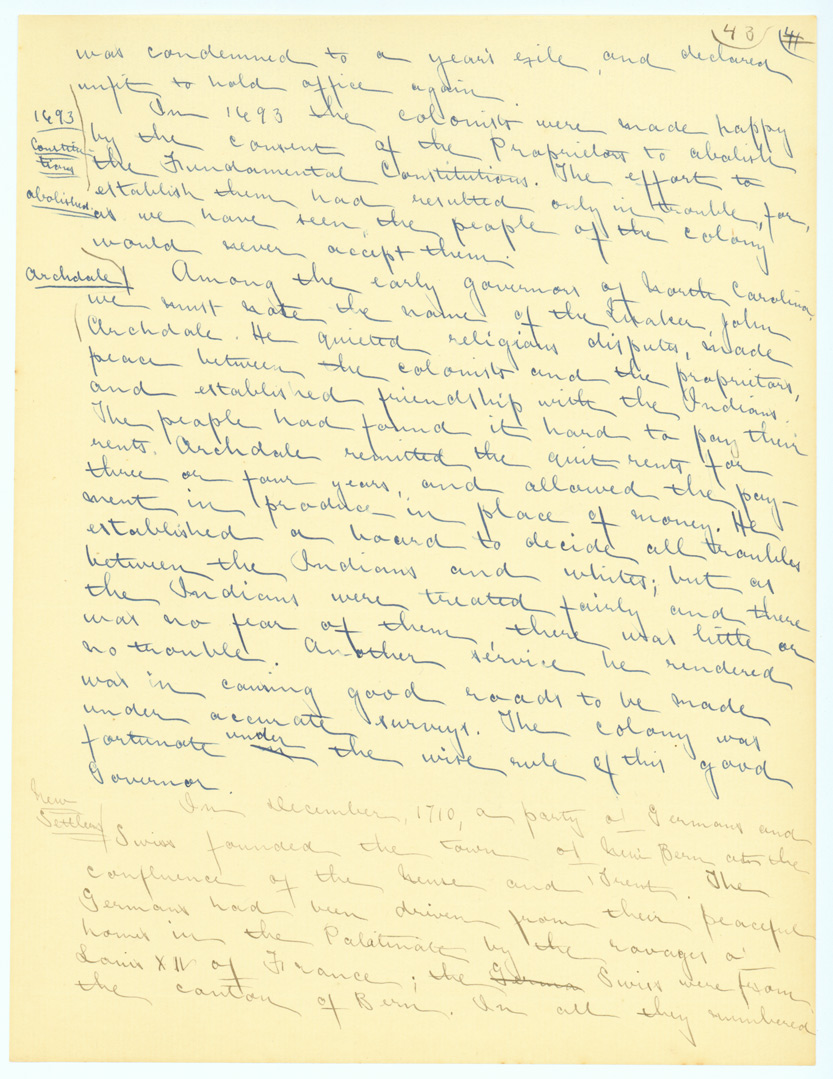 43 41
was condemned to a year's exile, and declared
unfit to hold office again.
1693
Constitu-
tions
abolished.
In 1693 the colonists were made happy
by the consent of the Proprietors to abolish
the Fundamental Constitutions. The effort to
establish them had resulted only in trouble, for,
as we have seen, the people of the colony
would never accept them.
Archdale
Among the early governors of North Carolina,
we must note the name of the Quaker, John
Archdale. He quieted religious disputes, made
peace between the colonists and the proprietors,
and established friendship with the Indians.
The people had found it hard to pay their
rents. Archdale remitted the quit rents for
three or four years, and allowed the pay-
ment in produce in place of money. He
established a board to decide all troubles
between the Indians and whites; but as
the Indians were treated fairly and there
was no fear of them, there was little or
no trouble. Another service he rendered
was in causing good roads to be made
under accurate surveys. The colony was
fortunate under the wise rule of this good
Governor.
New
Settlers
In December, 1710, a party of Germans and
Swiss founded the town of New Bern at the
confluence of the Neuse and Trent. The
Germans had been driven from their peaceful
homes in the Palatinate by the ravages o'
Louis XIV of France; the Germa Swiss were from
the canton of Bern. In all they numbered